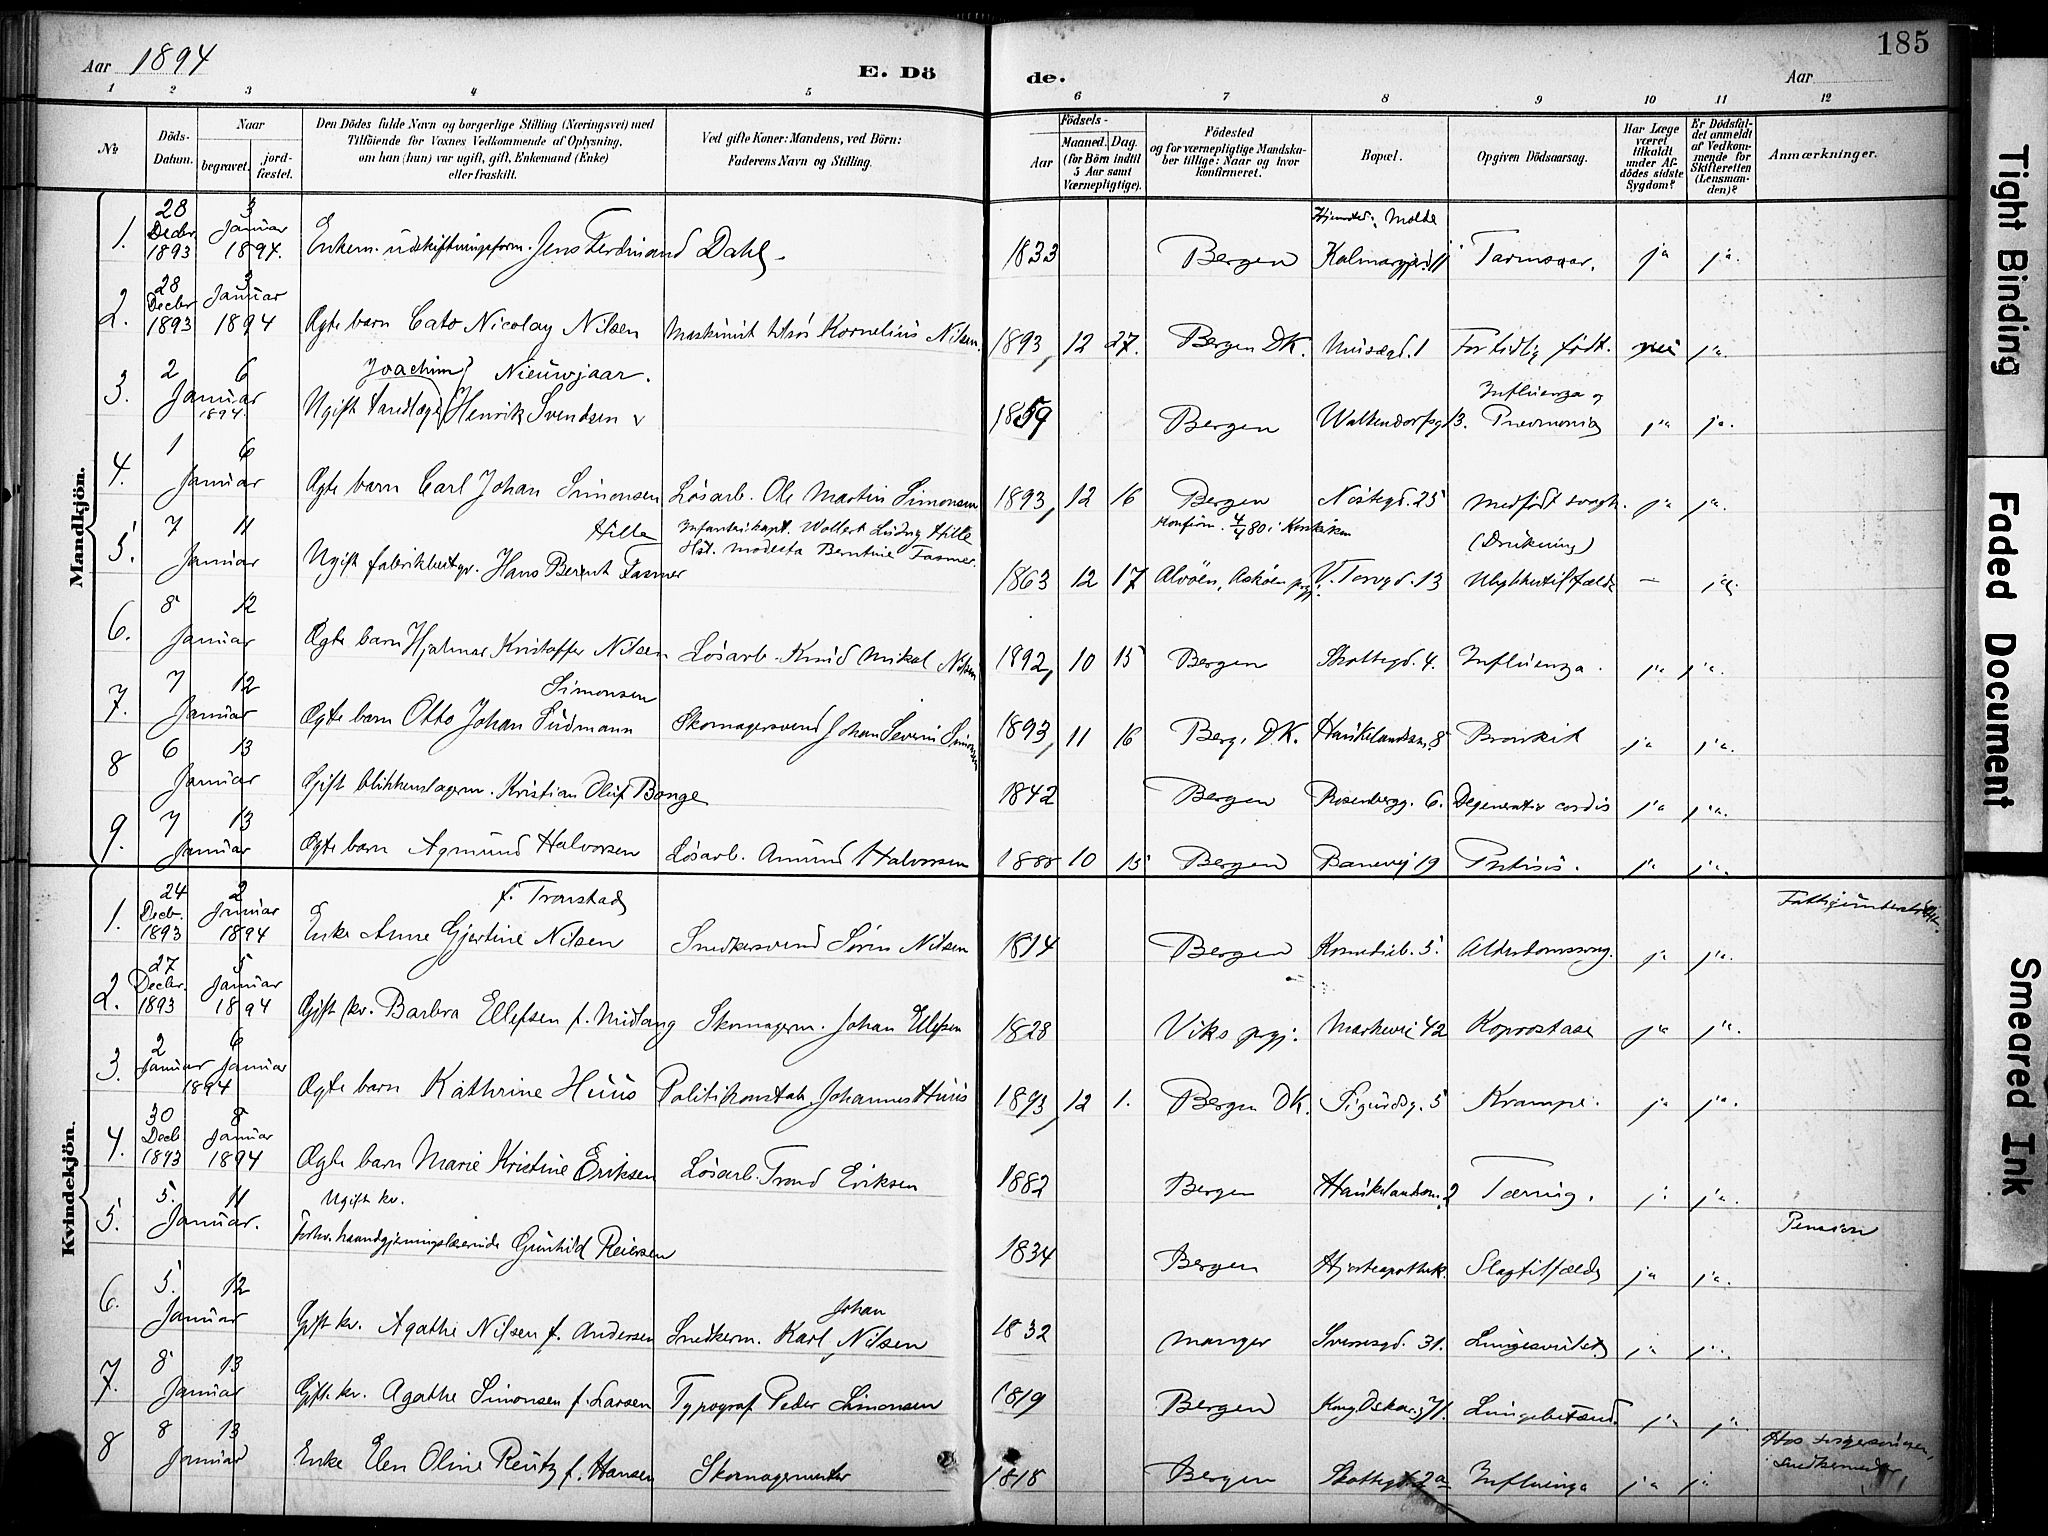 Aar 1894
E. Dö
de.
Aar
185
1 2 3 4 5 6 7 8 9 10 11 12
No
Döds-Datum.
Naar
begravet.
jord-fæstet.
Den Dödes fulde Navn og borgerlige Stilling (Næringsvei) med
Tilföiende for Voxnes Vedkommende af Oplysning,
om han (hun) var ugift, gift, Enkemand (Enke)
eller fraskilt.
Ved gifte Koner: Mandens, ved Börn:
Faderens Navn og Stilling.
Födsels-
Aar
Maaned. Dag.
(for Börn indtil
5 Aar samt
Værnepligtige).
Födested
og for værnepligtige Mandska-
ber tillige: Naar og hvor
konfirmeret.
Bopæl.
Opgiven Dödsaarsag.
Har Læge
været
tilkaldt
under Af-
dödes sidste
Sygdom?
Er Dödsfal-
det anmeldt
af Vedkom-
mende for
Skifteretten
(Lensman-
den)?
Anmærkninger.
Mandkjön.
1. 28 Decbr 1893 3 Januar 1894. Enkem. udskiftningsform. Jens Ferdinand Dahl. 1833 Bergen Molde Kalmargjer. 11 Tarmsaar. ja ja.
2. 28 Decbr 1893 3 Januar 1894 Ægte barn Cato Nicolay Nilsen Maskinist Kornelius Nilsen. 1893, 12 27. Bergen DK. Museegd. 1 For tidlig født. nei ja.
3. 2 6 Januar 1894. Joachim Nieuwjaar.
Ugift tandlæge Henrik Svendsen 1859 Bergen Walkendorfsgd 3. Influenza og Pneumonia ja ja.
4. 1 6 Januar Ægte barn Carl Johan Simonsen Løsarb. Ole Martin Simonsen 1893, 12 16 Bergen Nøstegd. 25 Medfødt svagh. ja ja.
5. 7 11 Januar Hille
Ugift fabrikbestyr. Hans Berent Fasmer Infanterikapt. Wollert Ludvig Hille
Hst. Modesta Berntine Fasmer. 1863 12 17 Konfirm. 4/4 80 i Korskirken
Alvøen, Askøen prgj. V. Torvgd. 13 (Drukning)
Ulykkestilfælde — ja
6. 8 12 Januar Ægte barn Hjalmar Kristoffer Nilsen Løsarb. Knud Mikal Nilsen 1892, 10 15 Bergen Skottegd. 4. Influenza. ja ja.
7. 7 12 Januar Simonsen
Ægte barn Otto Johan Südmann Skomagersvend Johan Severin Simonsen 1893, 11 16 Berg. D.K. Haukelandsm. 8 Bronkit ja ja.
8 6 13 Januar Gift blikkenslagerm. Kristian Oluf Bange 1842 Bergen Rosenbergg. 6. Degeneratio cordis ja ja.
9. 7 13 Januar Ægte barn Agmund Halvorsen Løsarb. Amund Halvorsen 1888 10 15 Bergen Banevej 19 Phtisis. ja ja.
Kvindekjön.
1. 24 Decb. 1893 2 Januar 1894 f. Tronstad
Enke Anne Gjertine Nilsen Snedkersvend Søren Nilsen 1814 Bergen Komedieb. 5. Alderdomssvag. ja ja. Fattigunderstøttet.
2. 27 Decbr. 1893 5 Januar 1894 Gift kv. Barbra Ellefsen f. Midtang Skomagerm. Johan Ellefsen 1828 Viks prgj. Markevei 42 Koprostase ja ja.
3. 2 Januar 6 Januar 1894 Ægte barn Kathrine Huus Politikonstab. Johannes Huus 1893, 12 1. Bergen DK. Sigurdsg. 5 Krampe. ja ja.
4. 30 Decb 1893 8 Januar 1894 Ægte barn Marie Kristine Eriksen Løsarb. Trond Eriksen 1882 Bergen Haukelandsm. 2 Tæring. j. ja.
5. 5. 11 Januar. Ugift kv.
Forhv. haandgjerningslærerinde Gunhild Reiersen 1834 Bergen Hjorteapothek. Slagtilfælde ja ja. Pension
6. 5. 12 Januar Gift kv. Agathe Nilsen f. Andersen Snedkerm. Karl Johan Nilsen 1832 Manger Sverresgd. 31. ja ja.
7. 8 13 Januar Gift kv. Agathe Simonsen f. Larsen Typograf Peder Simonsen 1819 Bergen Kong Oskarsg. 71. Lungebetænd. ja ja
8 8 13 Januar Enke Elen Oline Reutz f. Hansen Skomagermester 1818 Bergen Skottegd. 2a Influenza ja ja Hos svigersønnen, snedkermester
Tight Binding
Faded Document
Smeared Ink